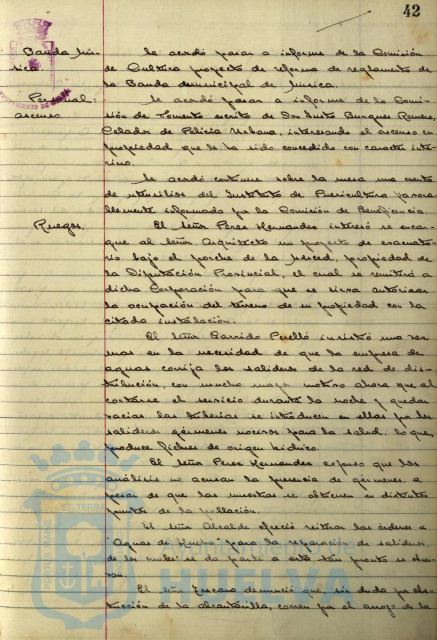 42
Banda Mú-
sica
Se acordó pasar a informe de la Comisión
de Cultura proyecto de reforma de reglamento de
la Banda Municipal de Música.
Personal:
ascenso
Se acordó pasar a informe de la Comi-
sión de Fomento escrito de Don Justo Burgues Romero,
Celador de Policía Urbana, interesando el ascenso en
propiedad que le ha sido concedido con caracter inte-
rino.
Se acordó continue sobre la mesa una cuenta
de utensilios del Instituto de Puericultura favora-
blemente informado por la Comisión de Beneficencia.
Ruegos.
El Señor Perez Hernandez interesó se encar-
gue al Señor Arquitecto un proyecto de evacuato-
rio bajo el porche de la Merced, propiedad de
la Diputación Provincial, el cual se remitirá a
dicha Corporación para que se sirva autorizar
la ocupación del terreno de su propiedad con la
citada instalación.
El Señor Garrido Perelló insistió una vez
mas en la necesidad de que la empresa de
aguas corrija los salideros de la red de dis-
tribución, con mucho mayor motivo ahora que al
cortarse el servicio durante la noche y quedar
vacias las tuberias se introducen en ellas por los
salideros gérmenes nocivos para la salud, lo que
produce fiebres de origen hídrico.
El Señor Perez Hernandez expuso que los
análisis no acusan la presencia de gérmenes, a
pesar de que las muestras se obtienen en distintos
puntos de la población.
El Señor Alcalde ofreció reiterar las órdenes a
"Aguas de Huelva" para la reparación de salideros
de los cuales se da parte a esta tan pronto se
El Señor Toscano denunció que, sin duda por obs-
trucción de la alcantarilla, corren por el arroyo de la
Ayuntamiento de
HUELVA